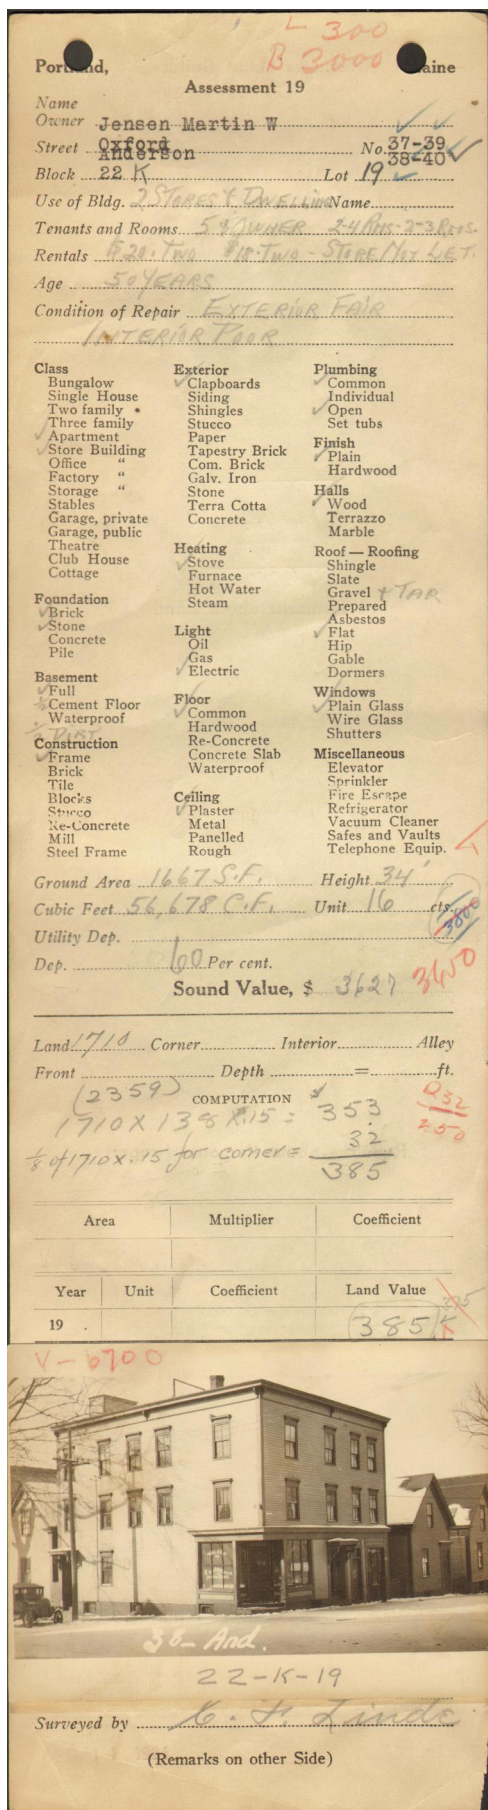 L 300
B 3000
Portland, Maine
Assessment 19
Name
Owner Jensen Martin W
Street Oxford No. 37-39
Anderson 38-40
Block 22 K Lot 19
Use of Bldg. 2 STORES & DWELLING Name
Tenants and Rooms 5 & OWNER 2-4 RMS-2-3 RMS.
Rentals $20-TWO $18-TWO - STORE NOT LET.
Age 50 YEARS
Condition of Repair EXTERIOR FAIR
INTERIOR POOR
Class
Bungalow
Single House
Two family
Three family
Apartment
Store Building
Office "
Factory "
Storage "
Stables
Garage, private
Garage, public
Theatre
Club House
Cottage
Foundation
Brick
Stone
Concrete
Pile
Basement
Full
½ Cement Floor
Waterproof
½ DIRT
Construction
Frame
Brick
Tile
Blocks
Stucco
Re-Concrete
Mill
Steel Frame
Exterior
Clapboards
Siding
Shingles
Stucco
Paper
Tapestry Brick
Com. Brick
Galv. Iron
Stone
Terra Cotta
Concrete
Heating
Stove
Furnace
Hot Water
Steam
Light
Oil
Gas
Electric
Floor
Common
Hardwood
Re-Concrete
Concrete Slab
Waterproof
Ceiling
Plaster
Metal
Panelled
Rough
Plumbing
Common
Individual
Open
Set tubs
Finish
Plain
Hardwood
Halls
Wood
Terrazzo
Marble
Roof — Roofing
Shingle
Slate
Gravel & TAR
Prepared
Asbestos
Flat
Hip
Gable
Dormers
Windows
Plain Glass
Wire Glass
Shutters
Miscellaneous
Elevator
Sprinkler
Fire Escape
Refrigerator
Vacuum Cleaner
Safes and Vaults
Telephone Equip.
Ground Area 1667 S.F. Height 34'
Cubic Feet 56,678 C.F. Unit 16 cts.
3800
Utility Dep.
Dep. 60 Per cent.
3650
Sound Value, $ 3627
Land 1710 Corner Interior Alley
Front Depth = ft.
(2359) COMPUTATION
1710 X 138 X .15 = $353
32
⅛ of 1710 X .15 for corner = 385
250
Area Multiplier Coefficient
Year Unit Coefficient Land Value
375
19 385
V-6700
38-And.
22-K-19
Surveyed by C. F. Linde
(Remarks on other Side)